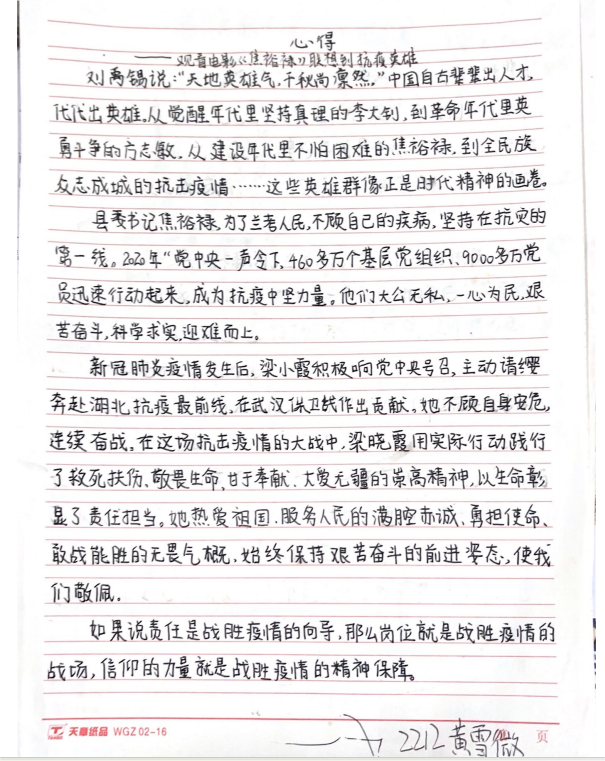 心得
——观看电影《焦裕禄》联想到抗疫英雄
刘禹锡说:“天地英雄气,千秋尚凛然。”中国自古辈辈出人才,
代代出英雄。从觉醒年代里坚持真理的李大钊,到革命年代里英
勇斗争的方志敏,从建设年代里不怕困难的焦裕禄,到全民族
众志成城的抗击疫情……这些英雄群像正是时代精神的画卷。
县委书记焦裕禄,为了兰考人民,不顾自己的疾病,坚持在抗灾的
第一线。2020年“党中央一声令下,460多万个基层党组织、9000多万党
员迅速行动起来,成为抗疫中坚力量。他们大公无私,一心为民,艰
苦奋斗,科学求实,迎难而上。
新冠肺炎疫情发生后,梁小霞积极响党中央号召,主动请缨
奔赴湖北抗疫最前线,在武汉保卫战作出贡献。她不顾自身安危,
连续奋战。在这场抗击疫情的大战中,梁晓霞用实际行动践行
了救死扶伤、敬畏生命、甘于奉献、大爱无疆的崇高精神,以生命彰
显了责任担当。她热爱祖国、服务人民的满腔赤诚、勇担使命、
敢战能胜的无畏气概,始终保持艰苦奋斗的前进姿态,使我
们敬佩。
如果说责任是战胜疫情的向导,那么岗位就是战胜疫情的
战场,信仰的力量就是战胜疫情的精神保障。
天章纸品 WGZ 02-16
2212 黄雪微 页